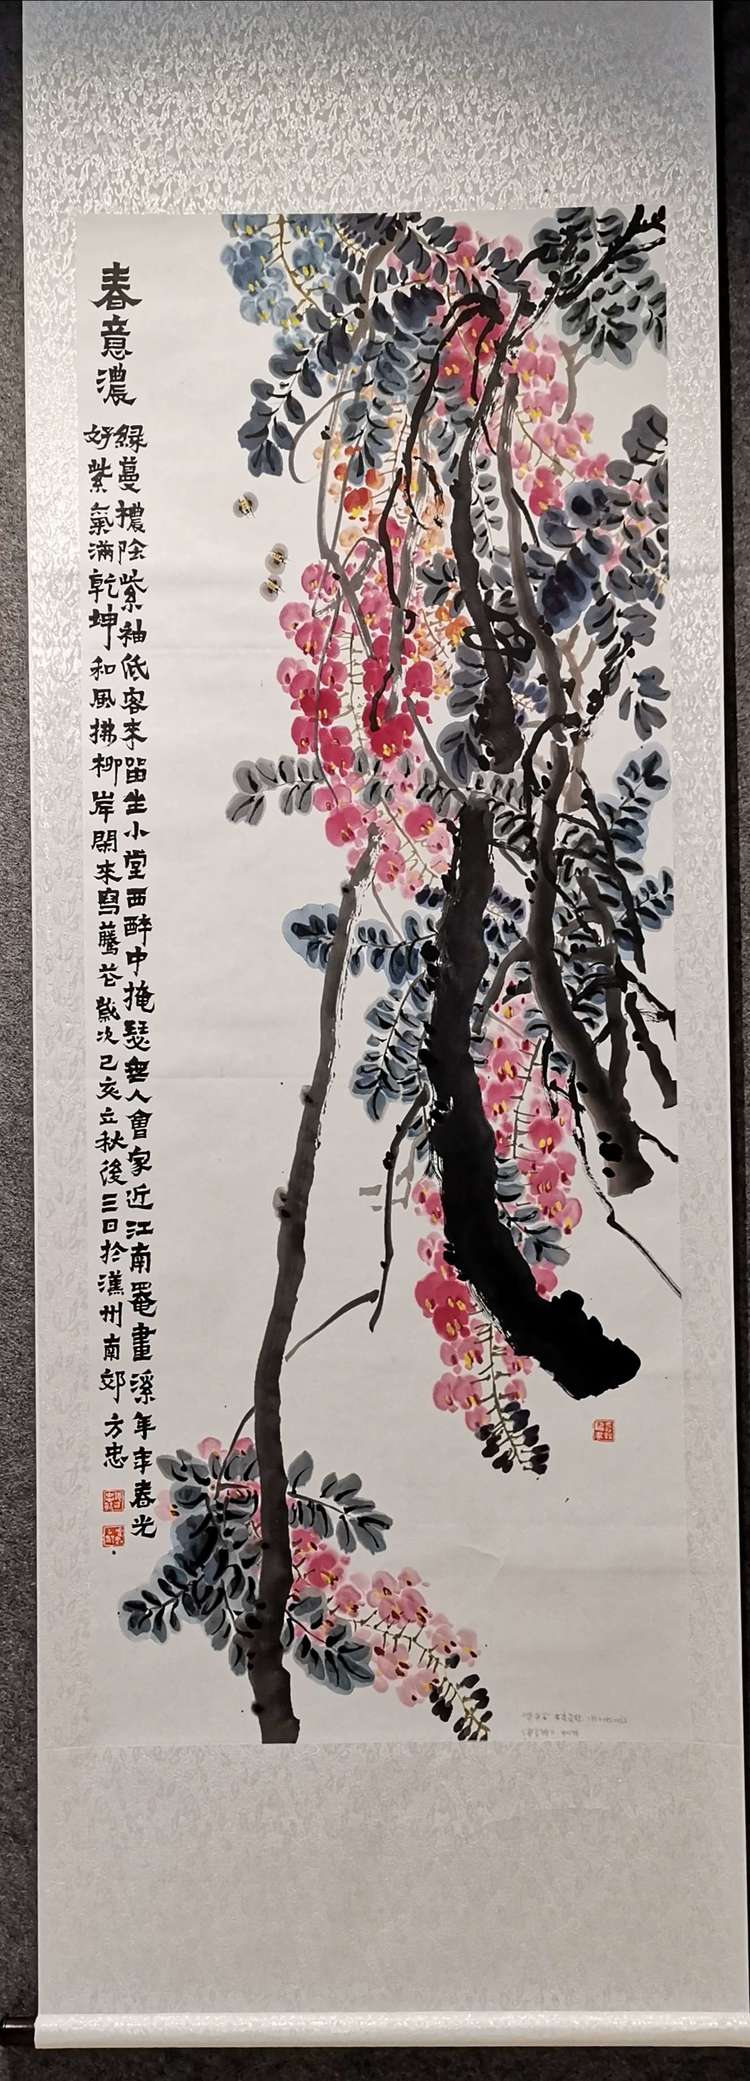 春意濃
緑蔓禯陰紫袖低客来留坐小堂西醉中掩瑟無人會家近江南罨畫溪年年春光
好紫氣滿乾坤和風拂柳岸閑来寫藤花歲次己亥立秋後三日於漢州南郊方忠